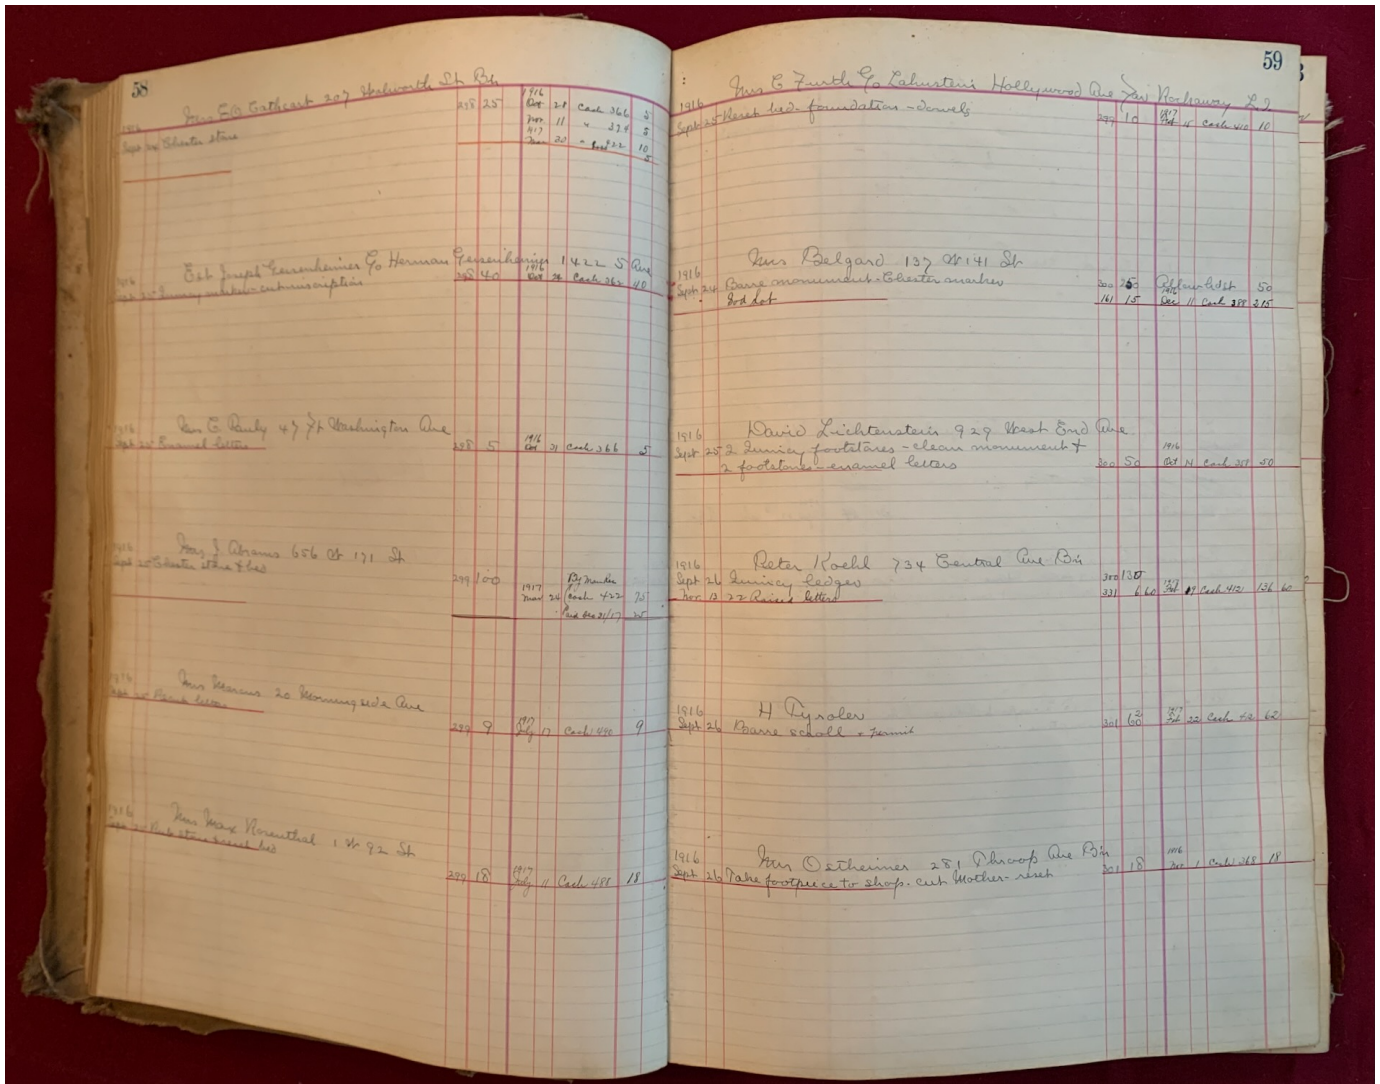 58
Mrs E O Cathcart 207 Walworth St Bn
1916
Sept 24 Chester stone 298 25
1916
Oct 28 Cash 366 5
Nov 11 " 379 5
1917
Mar 20 " 422 10
5
Est Joseph Geisenheimer c/o Herman Geisenheimer 1422 5 Ave
1916
Sept 25 Quincy marker - cut inscription 298 40
1916
Oct 24 Cash 362 40
Mrs C Pauly 47 Ft Washington Ave
1916
Sept 25 Enamel letters 298 5
1916
Oct 31 Cash 366 5
Mrs J Abrams 656 W 171 St
1916
Sept 25 Chester stone & bed 299 100
By Mem Res
1917
Mar 24 Cash 422 75
Paid Dec 31/17 25
Mrs Marcus 20 Morningside Ave
1916
Sept 25 299 9
1917
July 17 Cash 490 9
Mrs Max Rosenthal 1 W 92 St
1916
Sept 25 299 18
1917
July 11 Cash 488 18
59
Mrs C Furth c/o Lahnstein's Hollywood Ave Far Rockaway L I
1916
Sept 25 Reset bed - foundation - dowels 299 10
1917
Feb 15 Cash 410 10
Mrs Belgard 137 W 141 St
1916
Sept 24 Barre monument - Chester marker 300 250
50
Sod lot 161 15
1916
Dec 11 Cash 388 215
David Lichtenstein 929 West End Ave
1916
Sept 25 2 Quincy footstones - clean monument +
2 footstones - enamel letters 300 50
1916
Oct 14 Cash 357 50
Peter Koehl 734 Central Ave Bn
1916
Sept 26 Quincy ledger 300 130
Nov 13 22 Raised letters 331 6 60
1917
Feb 19 Cash 412 136 60
H Tyroler
1916
Sept 26 Barre scroll - Permit 301 62
1917
Feb 22 Cash 62
Mrs Ostheimer 281 Throop Ave Bn
1916
Sept 26 Take footpiece to shop. cut Mother - reset 301 18
1916
Nov 1 Cash 368 18